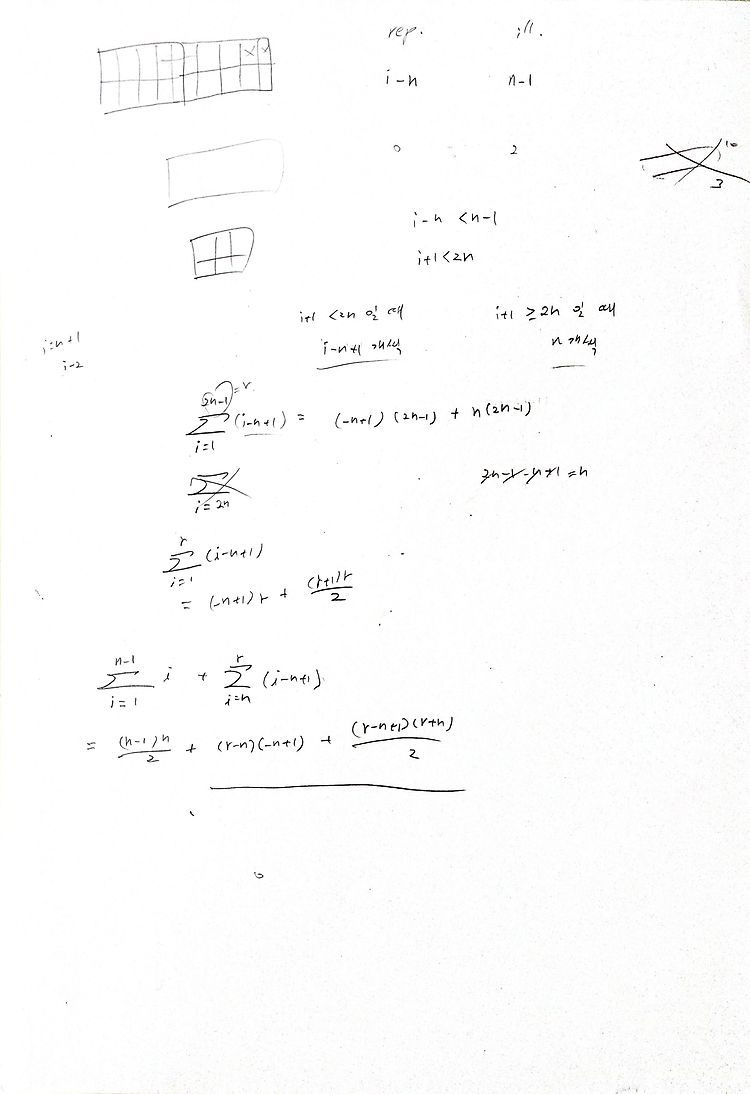 rep. ill.
i-n n-1
0 2
10
3
i-n < n-1
i+1 < 2n
i+1 < 2n 일 때 i+1 ≥ 2n 일 때
i-n+1 개씩 n 개씩
i=n+1
i-2
2n-1 = r
∑ (i-n+1) = (-n+1)(2n-1) + n(2n-1)
i=1
∑
i=2n
2n-1-n+1 = n
r
∑ (i-n+1)
i=1
= (-n+1)r + (r+1)r/2
n-1 r
∑ i + ∑ (i-n+1)
i=1 i=n
= (n-1)n/2 + (r-n)(-n+1) + (r-n+1)(r+n)/2
0